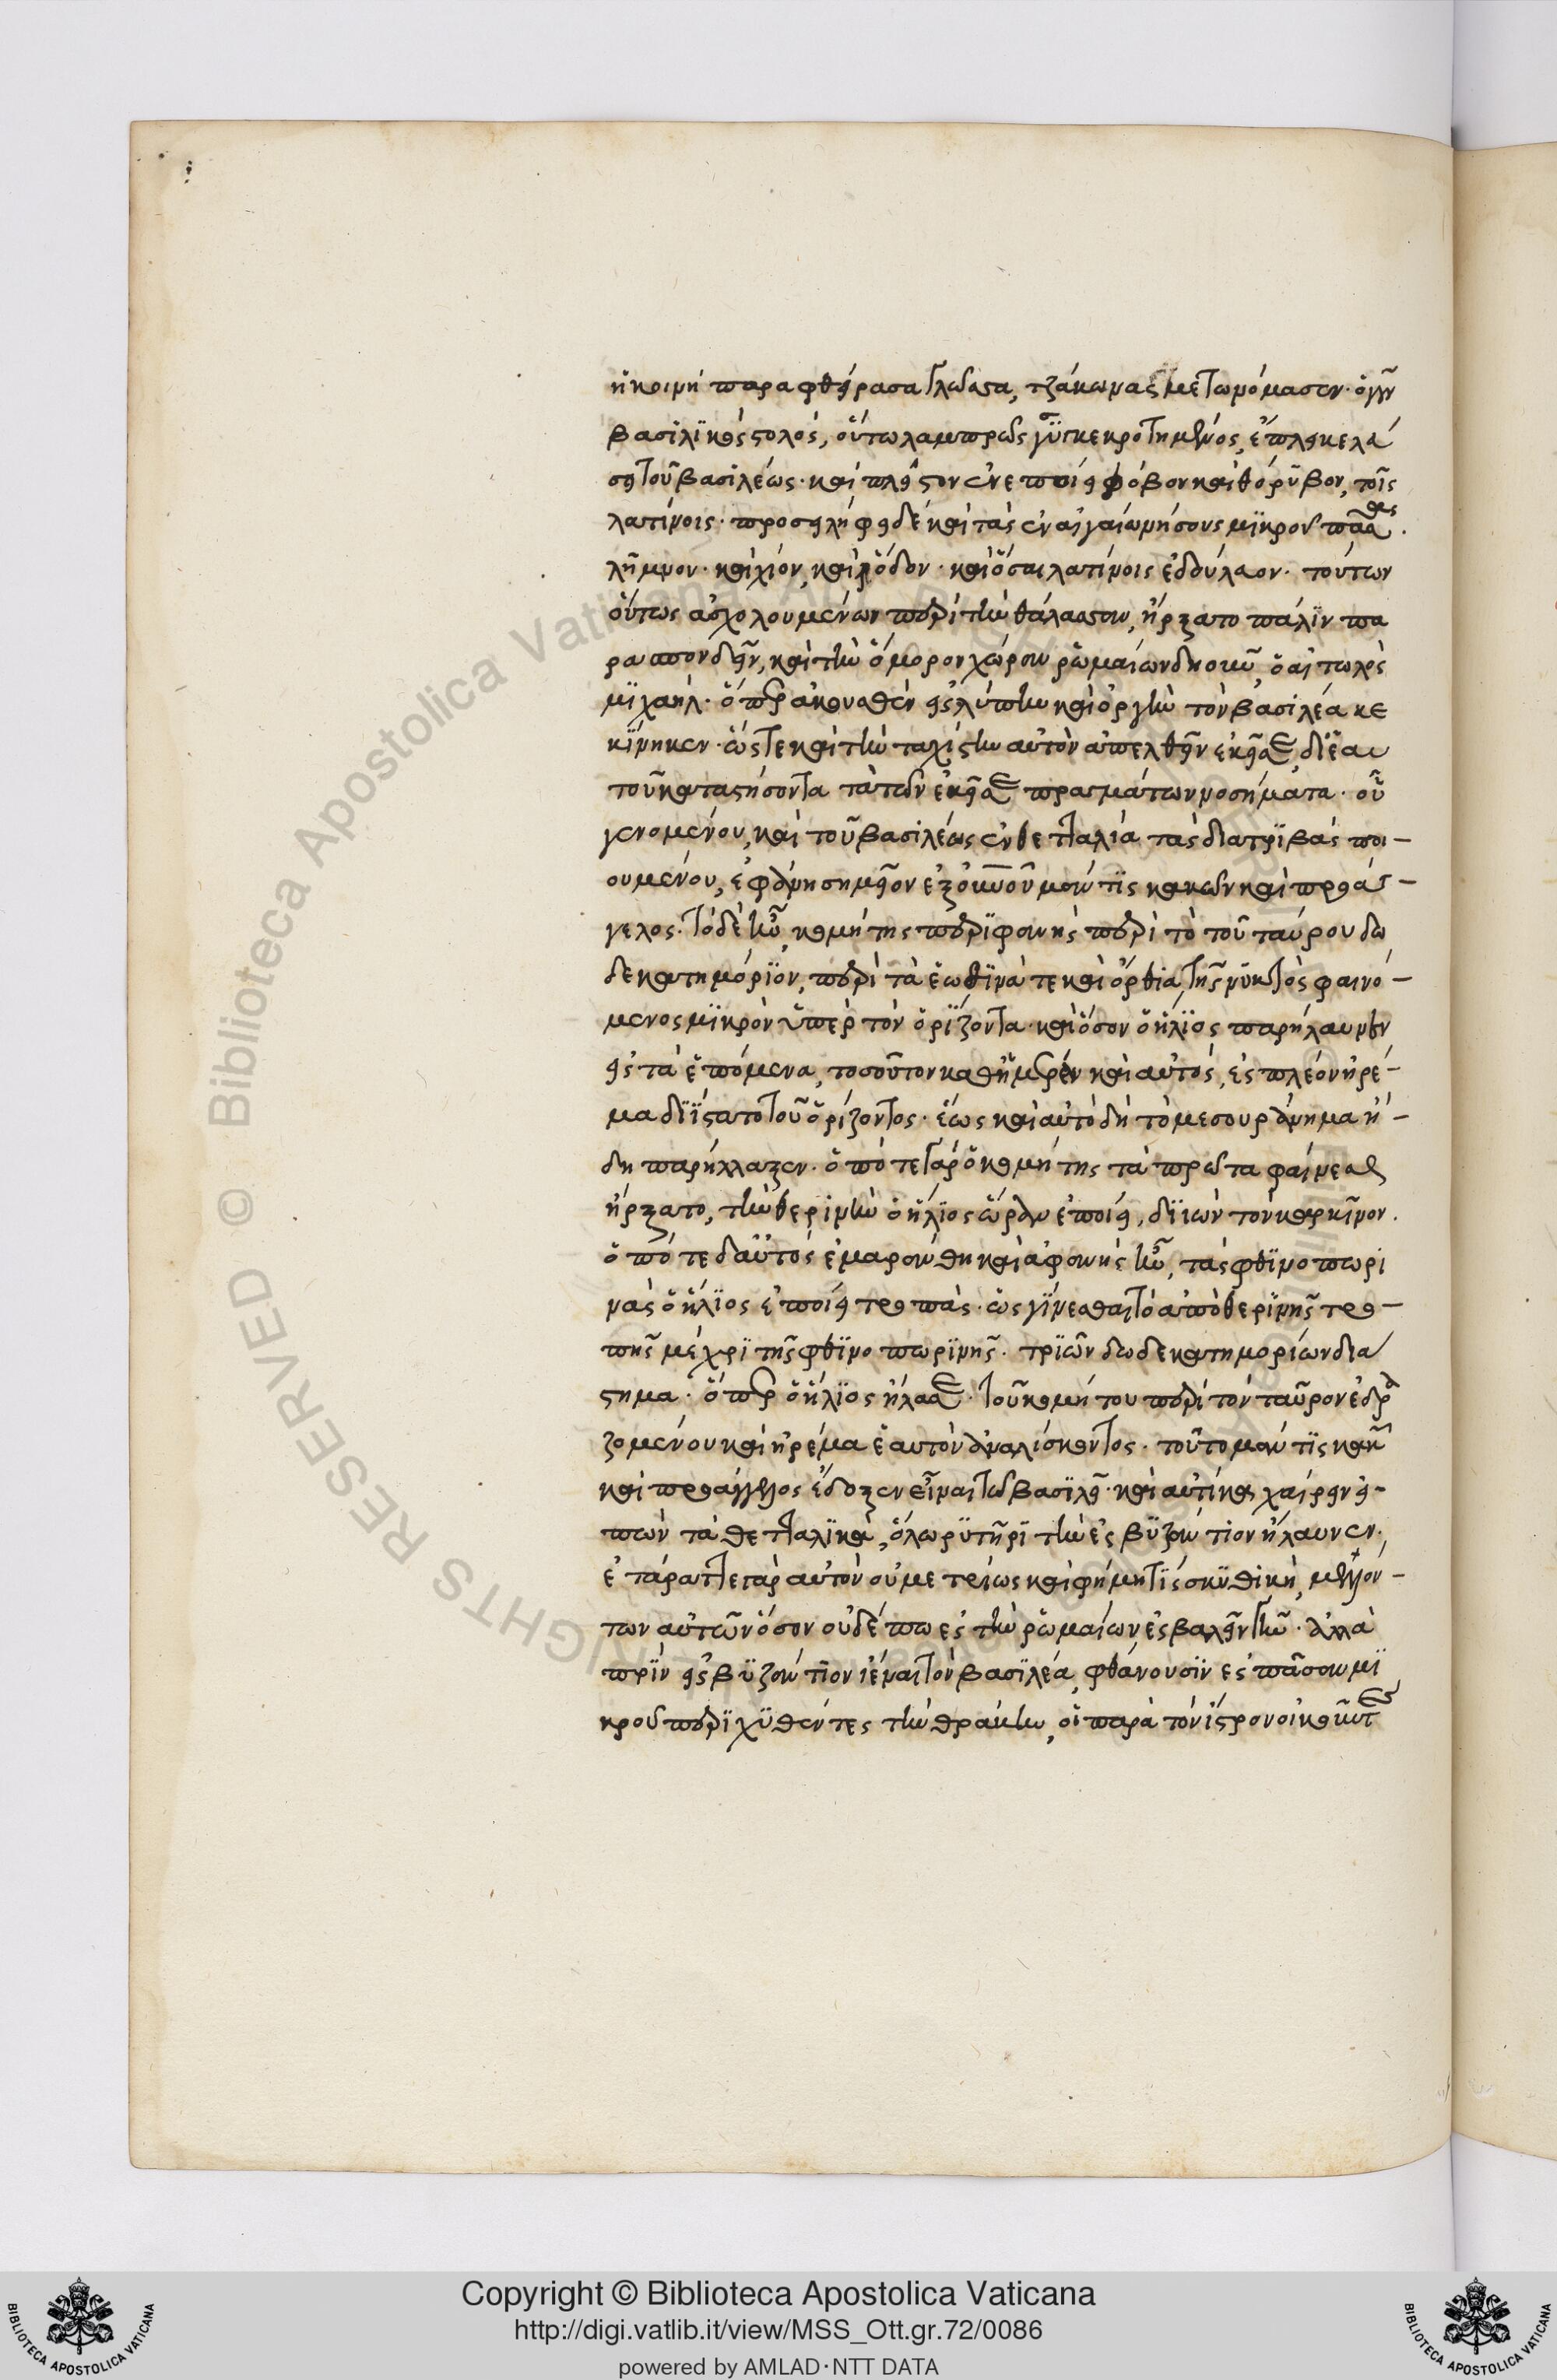 ἡ κοινὴ παραφθείρασα γλῶσσα, τζάκωνας μετωνόμασεν. ὁ γοῦν
βασιλικὸς στόλος, οὕτω λαμπρῶς συγκεκροτημένος, ἐπλει κελεύ
σει τοῦ βασιλέως. καὶ πλεῖστον ἐνεποίει φόβον καὶ θόρυβον, τοῖς
λατίνοις. προσειλήφει δὲ καὶ τὰς ἐν αἰγαίω νήσους μικροῦ πάσας.
λῆμνον. καὶ χίον, καὶ ῥόδον. καὶ ὅσαι λατίνοις ἐδούλευον. τούτων
οὕτως ἀσχολουμένων περὶ τὴν θάλασσαν, ἤρξατο πάλιν πα
ρασπονδεῖν, καὶ τὴν ὅμορον χώραν ῥωμαίων δηοῦν, ὁ αἰτωλὸς
μιχαήλ. ὅπερ ἀκουσθὲν εἰς λύπην καὶ ὀργὴν τὸν βασιλέα κε
κίνηκεν. ὥστε καὶ τὴν ταχίστην αὐτὸν ἀπελθεῖν ἐκεῖσε, δι' ἑαυ
τοῦ καταστήσοντα τὰ τῶν ἐκεῖσε πραγμάτων νοσήματα. οὗ
γενομένου, καὶ τοῦ βασιλέως ἐν θετταλία τὰς διατριβὰς ποι-
ουμένου, ἐφάνη σημεῖον ἐξ οὐρανοῦ μάντις κακῶν καὶ προάγ-
γελος. τὸ δὲ ἦν, κομήτης περιφανὴς περὶ τὸ τοῦ ταύρου δω
δεκατημόριον, περὶ τὰ ἑωθινά τε καὶ ὄρθια τῆς νυκτὸς φαινό-
μενος μικρὸν ὑπὲρ τὸν ὁρίζοντα. καὶ ὅσον ὁ ἥλιος παρήλαυνεν
εἰς τὰ ἑπόμενα, τοσοῦτον καθημέραν καὶ αὐτὸς, ἐς πλέον ἠρέ-
μα διΐστατο τοῦ ὁρίζοντος. ἕως καὶ αὐτὸ δὴ τὸ μεσουράνημα ἤ-
δη παρήλλαξεν. ὁπότε γὰρ ὁ κομήτης τὰ πρῶτα φαίνεσθαι
ἤρξατο, τὴν θερινὴν ὁ ἥλιος ὥραν ἐποίει, διϊὼν τὸν καρκῖνον.
ὁπότε δ' αὐτὸς ἐμαράνθη καὶ ἀφανὴς ἦν, τὰς φθινοπωρι
νὰς ὁ ἥλιος ἐποίει τροπάς. ὡς γίνεσθαι τὸ ἀπὸ θερινῆς τρο-
πῆς μέχρι τῆς φθινοπωρινῆς. τριῶν δωδεκατημορίων διά
στημα. ὅπερ ὁ ἥλιος ἤλασε. τοῦ κομήτου περὶ τὸν ταῦρον ἑδρα
ζομένου καὶ ἠρέμα ἑαυτὸν ἀναλίσκοντος. τοῦτο μάντις κακῶν
καὶ προάγγελος ἔδοξεν εἶναι τῶ βασιλεῖ. καὶ αὐτίκα χαίρειν εἰ-
πὼν τὰ θετταλικὰ, ὅλω ῥυτῆρι τὴν ἐς βυζάντιον ἤλαυνεν.
ἐτάραττε γὰρ αὐτὸν οὐ μετρίως καὶ φήμη τὶς σκυθικὴ, μελλόν-
των αὐτῶν ὅσον οὐδέπω ἐς τὴν ῥωμαίων ἐσβαλεῖν γῆν. ἀλλὰ
πρὶν εἰς βυζάντιον ἰέναι τὸν βασιλέα, φθάνουσιν ἐς πᾶσαν μι
κροῦ περιχυθέντες τὴν θράκην, οἱ παρὰ τὸν ἴστρον οἰκοῦντες
Copyright © Biblioteca Apostolica Vaticana
http://digi.vatlib.it/view/MSS_Ott.gr.72/0086
powered by AMLAD·NTT DATA